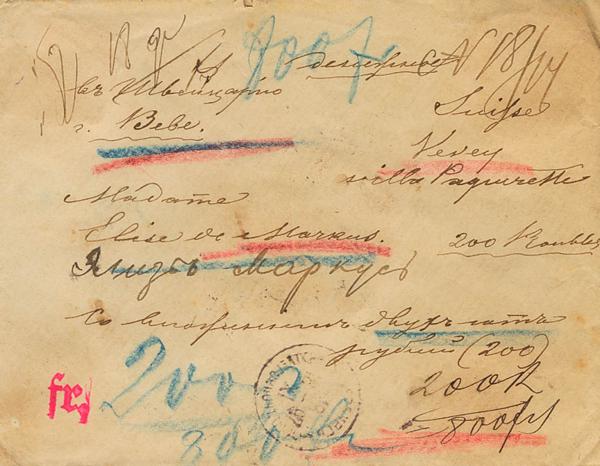 800 fr
денежное N 18/14
въ Швейцарію
Suisse
г. Веве.
Vevey
villa Paquerette
Madame
Elise de Markus.
200 Roubles
Элизъ Маркусъ
со вложеніемъ двухъ сотъ
рублей (200)
200 R
800 fr
fr.
200 R